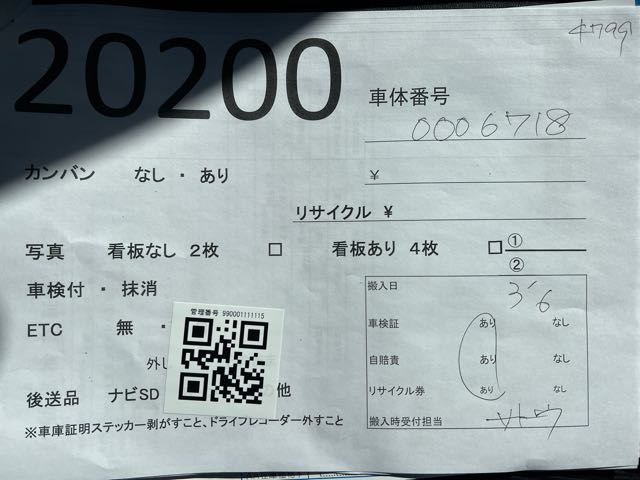 20200
車体番号
0006718
カンバン なし ・ あり
¥
リサイクル ¥
写真 看板なし 2枚 □ 看板あり 4枚 □ ①
②
車検付 ・ 抹消
ETC 無 ・
外し
後送品 ナビSD 他
※車庫証明ステッカー剥がすこと、ドライブレコーダー外すこと
管理番号 990001111115
搬入日 3/6
車検証 あり なし
自賠責 あり なし
リサイクル券 あり なし
搬入時受付担当 サトウ